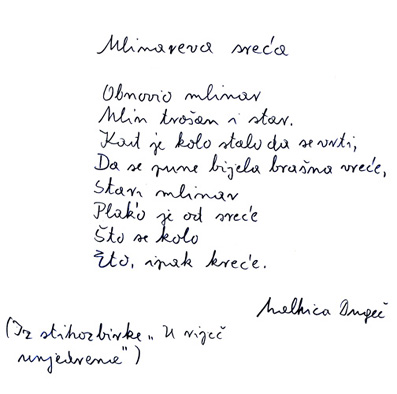 Mlinareva sreća
Obnovio mlinar
Mlin trošan i star.
Kad je kolo stalo da se vrti,
Da se pune bijela brašna vreće,
Stari mlinar
Plakó je od sreće
Što se kolo
Eto, ipak kreće.
Malkica Dugeč
(Iz stihozbirke „U riječ
unjedrene")